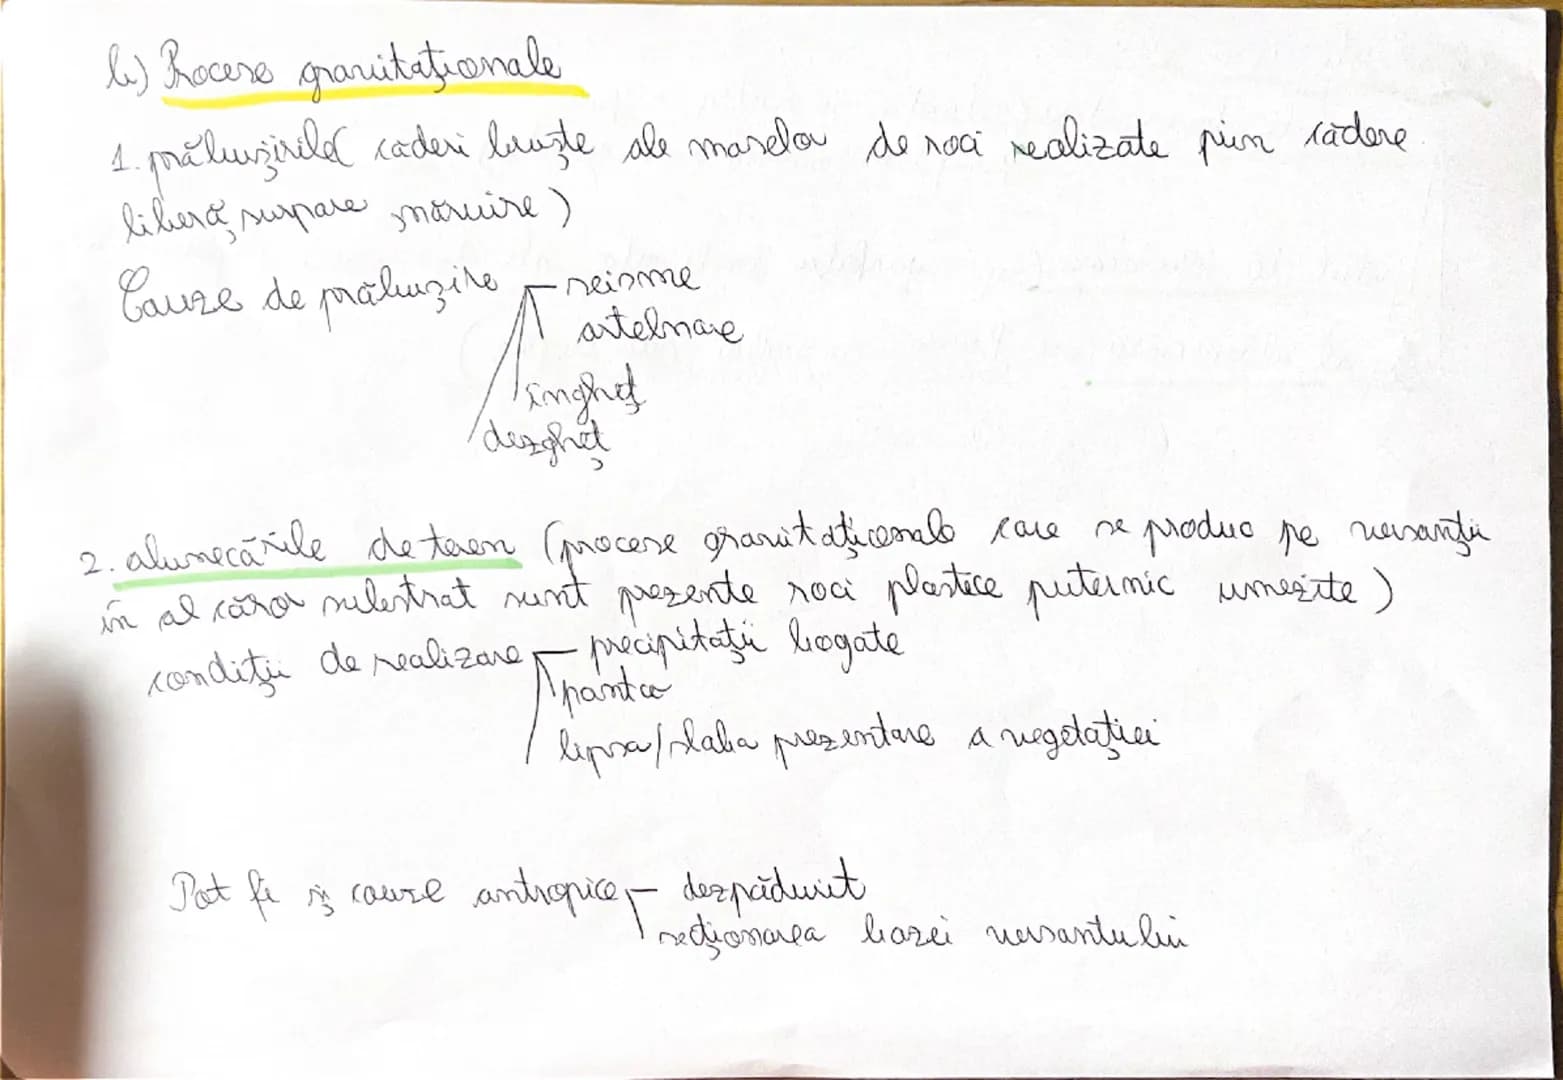 b) Procese gravitaționale
1. prăbușirile( căderi bruște ale maselor de roci realizate prin cădere
liberă, surpare, năruire)
Cauze de prăbușire - seisme
îngheț
dezgheț
2. alunecările de teren (procese gravitaționale care se produc pe versanții
în al căror substrat sunt prezente roci plastice puternic umezite)
condiții de realizare - precipitații bogate
panta
lipsa/slaba prezentare a vegetației
Pot fi și cauze antropice - dezpădurit
secționarea bazei versantului